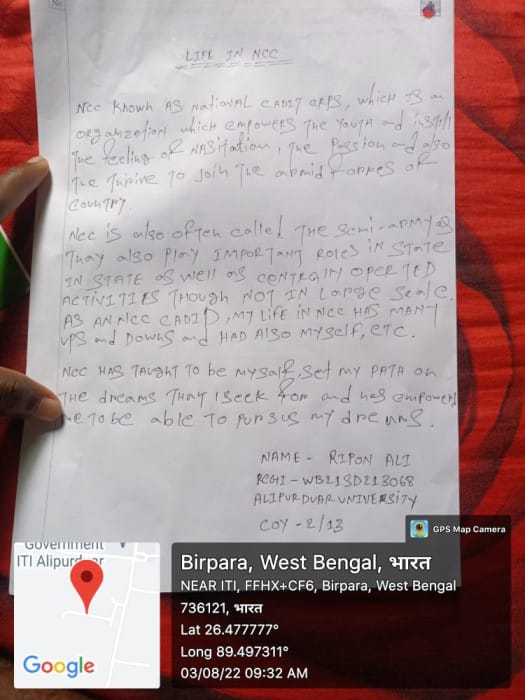 LIFE IN NCC
NCC KNOWN AS NATIONAL CADIT CRPS, WHICH IS an
ORGANZETION WHICH EMPOWERS THE YOUTH and INSTILL
The feeling OF NASITATION, THE PASSION and also
THE TNRIVE TO JOIN THE ARMID FORPES OF
COUNTRY.
NCC is also often called THE SEMI-ARMY as
THAY also PLAY IMPORTANT ROLES IN STATE
IN STATE as well as CENTRALLY OPERTED
ACTIVITIES THOUGH NOT IN Large Scale.
AS AN NCC CADID, MY LIFE IN NCC HAS MANY
UPS and DOWNS and HAD ALSO MYSELF, ETC.
NCC HAS TAUGHT TO be MYSALF, SET MY PATH on
THE dreams THAT I SEEK FOR and has empowers
me TO be able TO PURSUS MY dreams.
NAME - RIPON ALI
REGI - WB21SD213068
ALIPURDUAR UNIVERSITY
COY - 2/13
GPS Map Camera
Government
ITI Alipurduar
Google
Birpara, West Bengal, भारत
NEAR ITI, FFHX+CF6, Birpara, West Bengal
736121, भारत
Lat 26.477777°
Long 89.497311°
03/08/22 09:32 AM